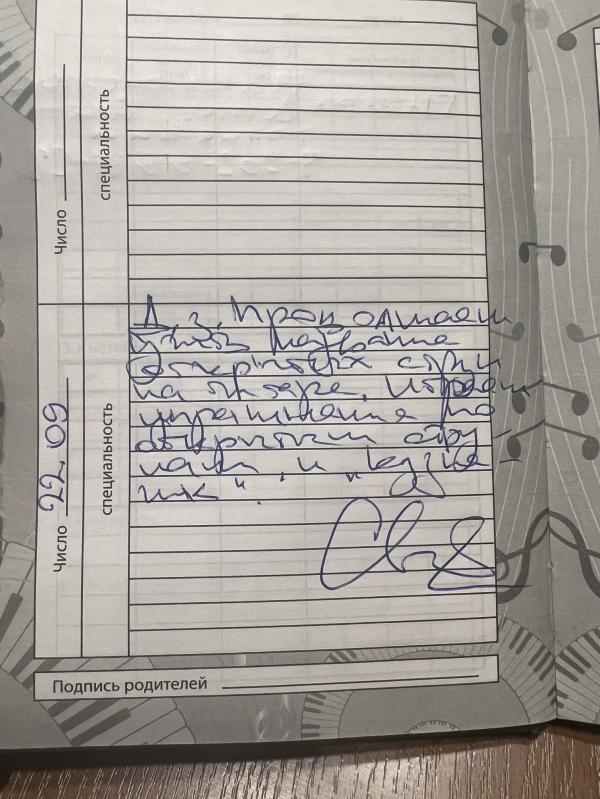 Число
специальность
Число 22.09
специальность
Д.з. Продолжаем
учить названия
открытых струн
на гитаре. Играем
упражнения по
открытым стру-
нам, и "Кузне-
чик".
Подпись родителей